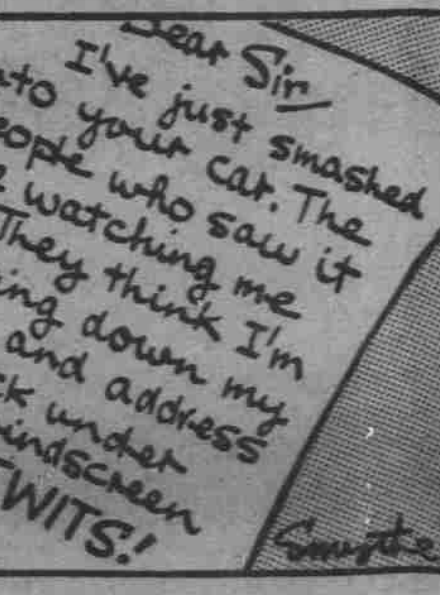 Dear Sir
I've just smashed
nto your car. The
eople who saw it
watching me
They think I'm
ing down my
and address
ck under
indscreen
TWITS!
Smythe